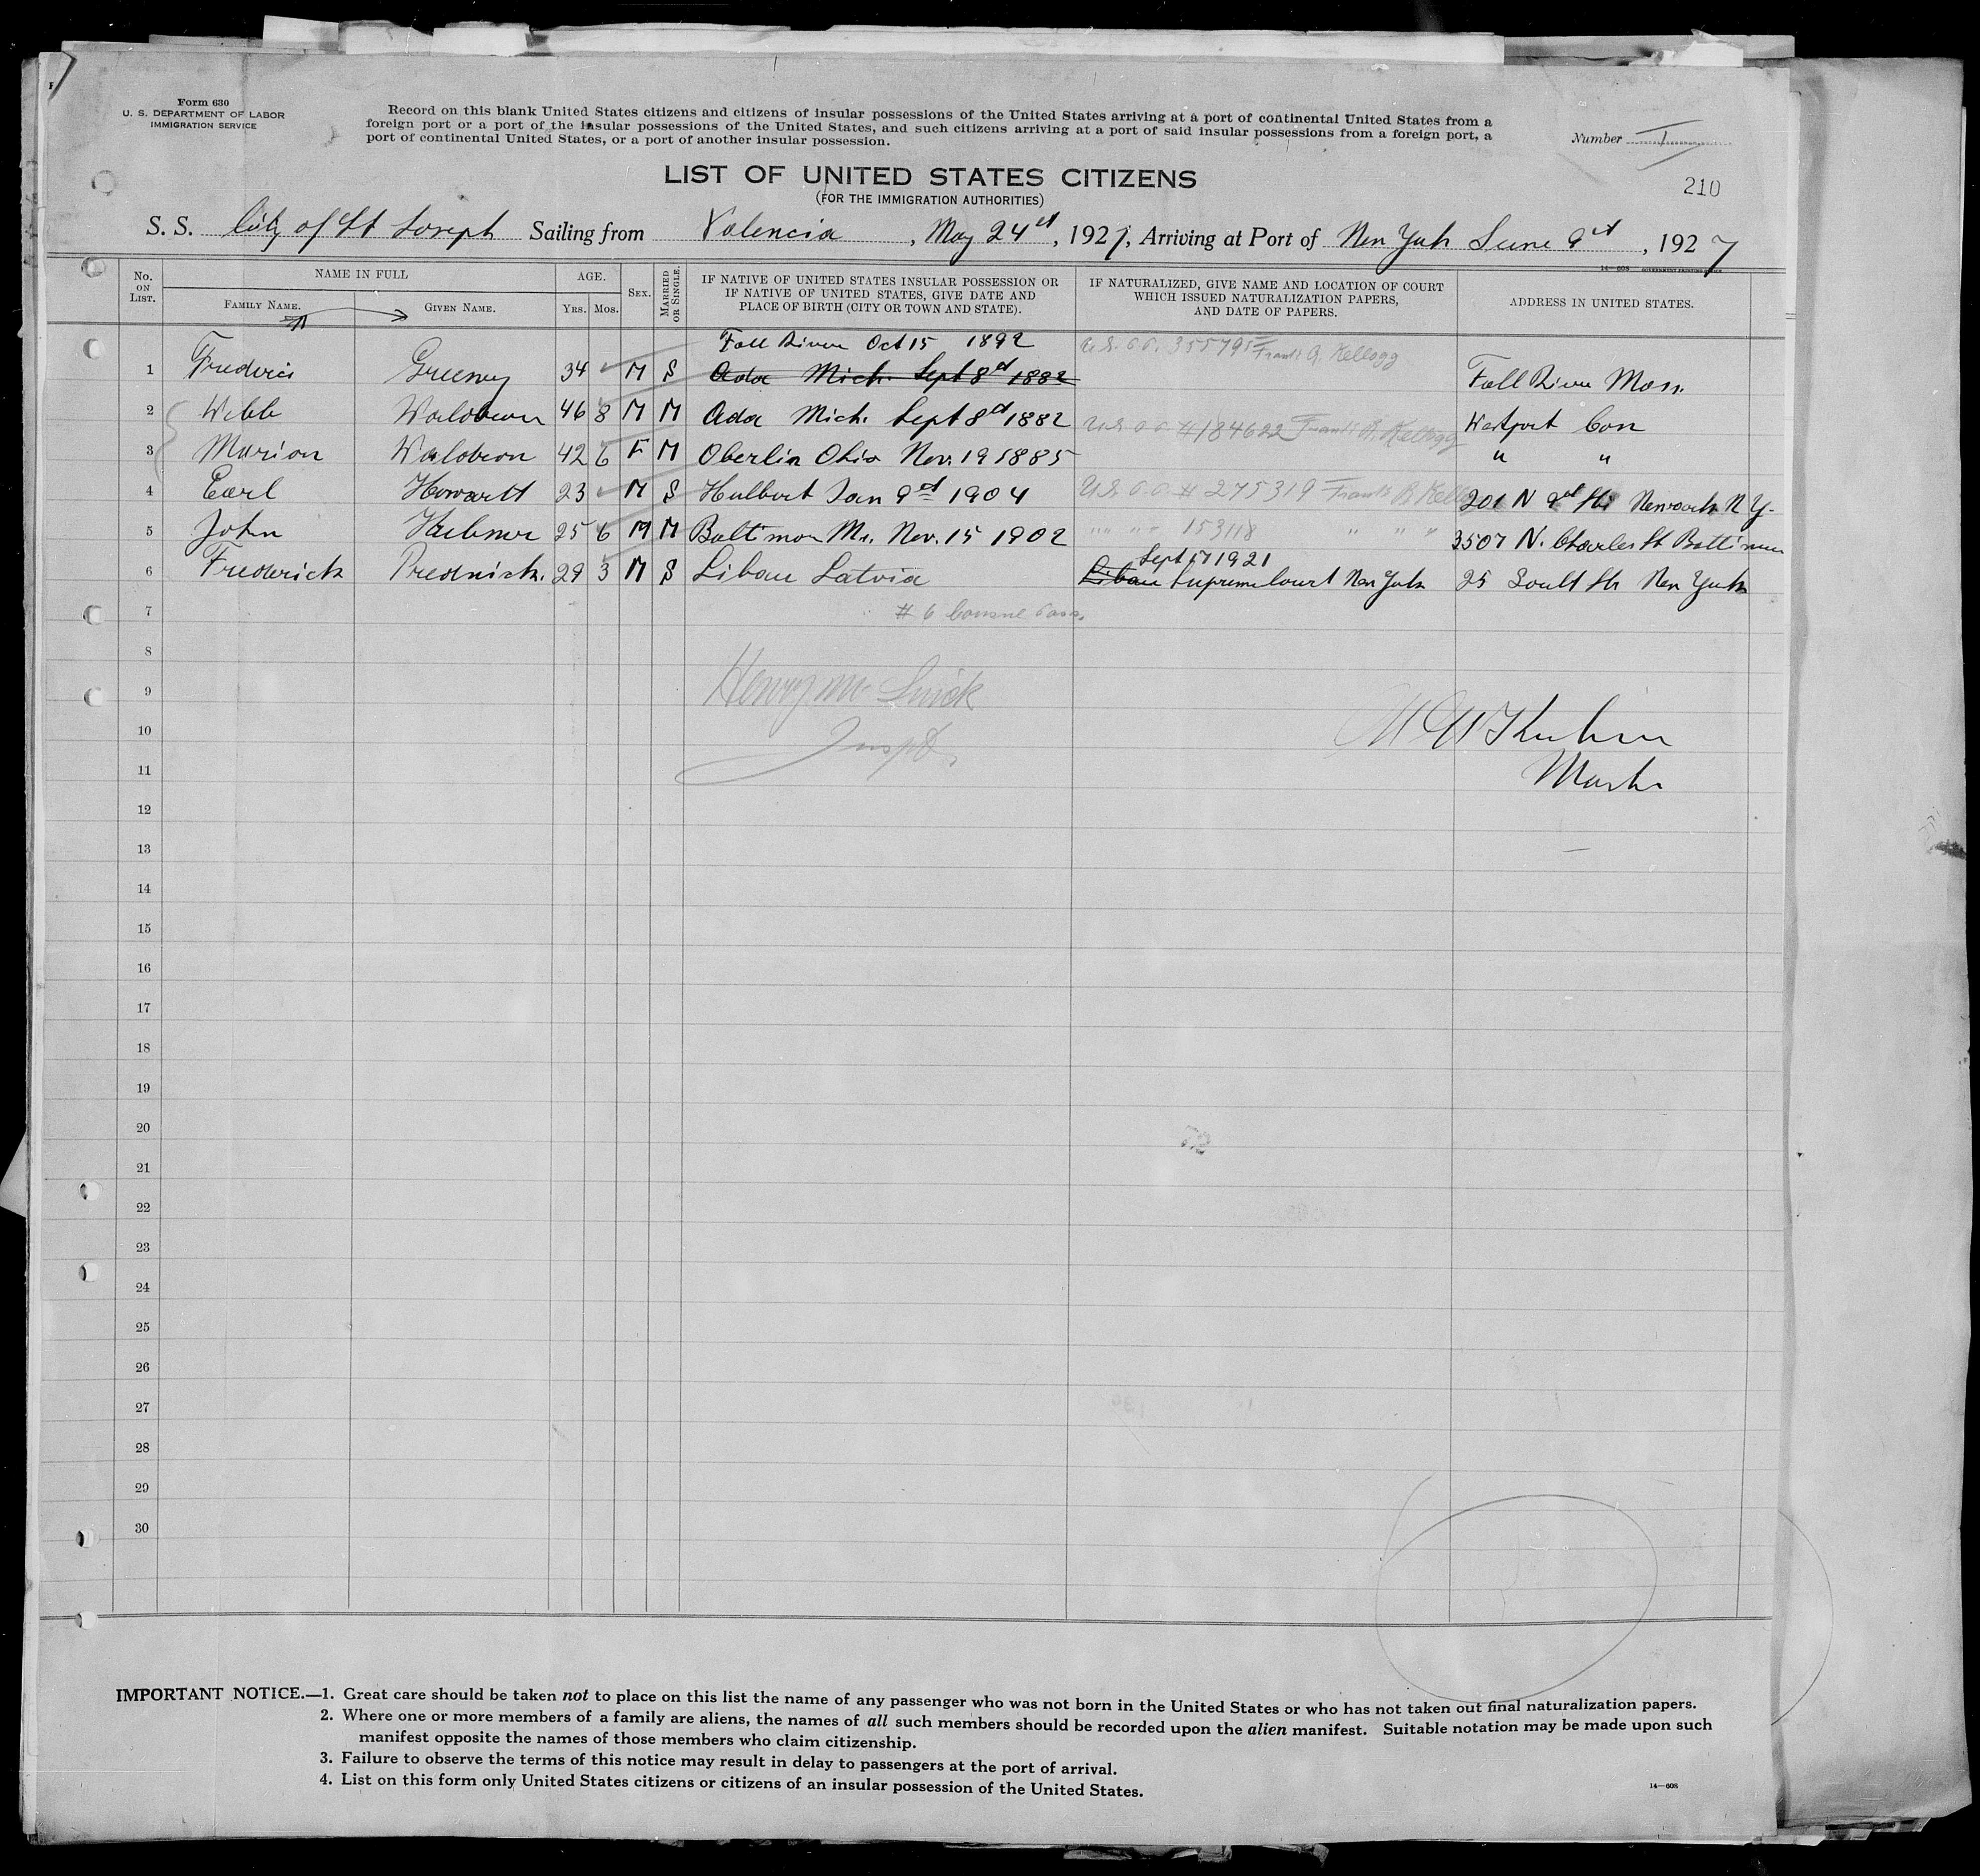 Form 630
U. S. DEPARTMENT OF LABOR
IMMIGRATION SERVICE
Record on this blank United States citizens and citizens of insular possessions of the United States arriving at a port of continental United States from a
foreign port or a port of the insular possessions of the United States, and such citizens arriving at a port of said insular possessions from a foreign port, a
port of continental United States, or a port of another insular possession.
Number I
210
LIST OF UNITED STATES CITIZENS
(FOR THE IMMIGRATION AUTHORITIES)
S. S. City of St Joseph Sailing from Valencia, May 24, 1927, Arriving at Port of New York June 9, 1927
14—608 GOVERNMENT PRINTING OFFICE
No. ON LIST.
NAME IN FULL
FAMILY NAME.
GIVEN NAME.
AGE.
Yrs. Mos.
SEX.
MARRIED OR SINGLE.
IF NATIVE OF UNITED STATES INSULAR POSSESSION OR
IF NATIVE OF UNITED STATES, GIVE DATE AND
PLACE OF BIRTH (CITY OR TOWN AND STATE).
IF NATURALIZED, GIVE NAME AND LOCATION OF COURT
WHICH ISSUED NATURALIZATION PAPERS,
AND DATE OF PAPERS.
ADDRESS IN UNITED STATES.
Fall River Oct 15 1892 355795 Frank B. Kellogg
1 Frederic Greeney 34 M S Ada Mich. Sept 8 1882 Fall River Mass.
2 Webb Waldron 46 8 M M Ada Mich. Sept 8 1882 #184622 Frank B. Kellogg Westport Con
3 Marion Waldron 42 6 F M Oberlin Ohio Nov. 19 1885 " "
4 Earl Howartt 23 M S Hulbert Jan 9 1904 # 275319 Frank B Kellogg 201 N 9
5 John 25 6 M M Nov. 15 1902 " " " 153118 " " " 3507 N. Charles St Baltimore
Sept 17 1921
6 Frederick Prednick. 29 3 M S Libau Latvia Libau Supreme Court New York 25 South Str New York
7
# 6
8
9 Henry
10 Inspt.
11
12
13
14
15
16
17
18
19
20
21
22
23
24
25
26
27
28
29
30
IMPORTANT NOTICE.—1. Great care should be taken not to place on this list the name of any passenger who was not born in the United States or who has not taken out final naturalization papers.
2. Where one or more members of a family are aliens, the names of all such members should be recorded upon the alien manifest. Suitable notation may be made upon such
manifest opposite the names of those members who claim citizenship.
3. Failure to observe the terms of this notice may result in delay to passengers at the port of arrival.
4. List on this form only United States citizens or citizens of an insular possession of the United States.
14—608